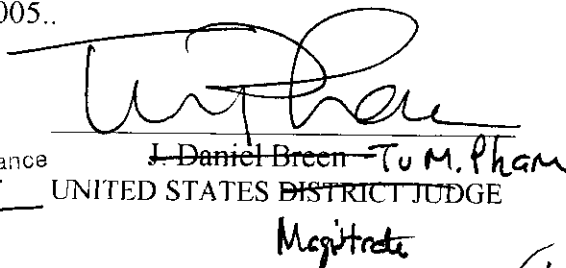 005..
Tu M. Pham
ance J. Daniel Breen Tu M. Pham
UNITED STATES DISTRICT JUDGE
Magistrate